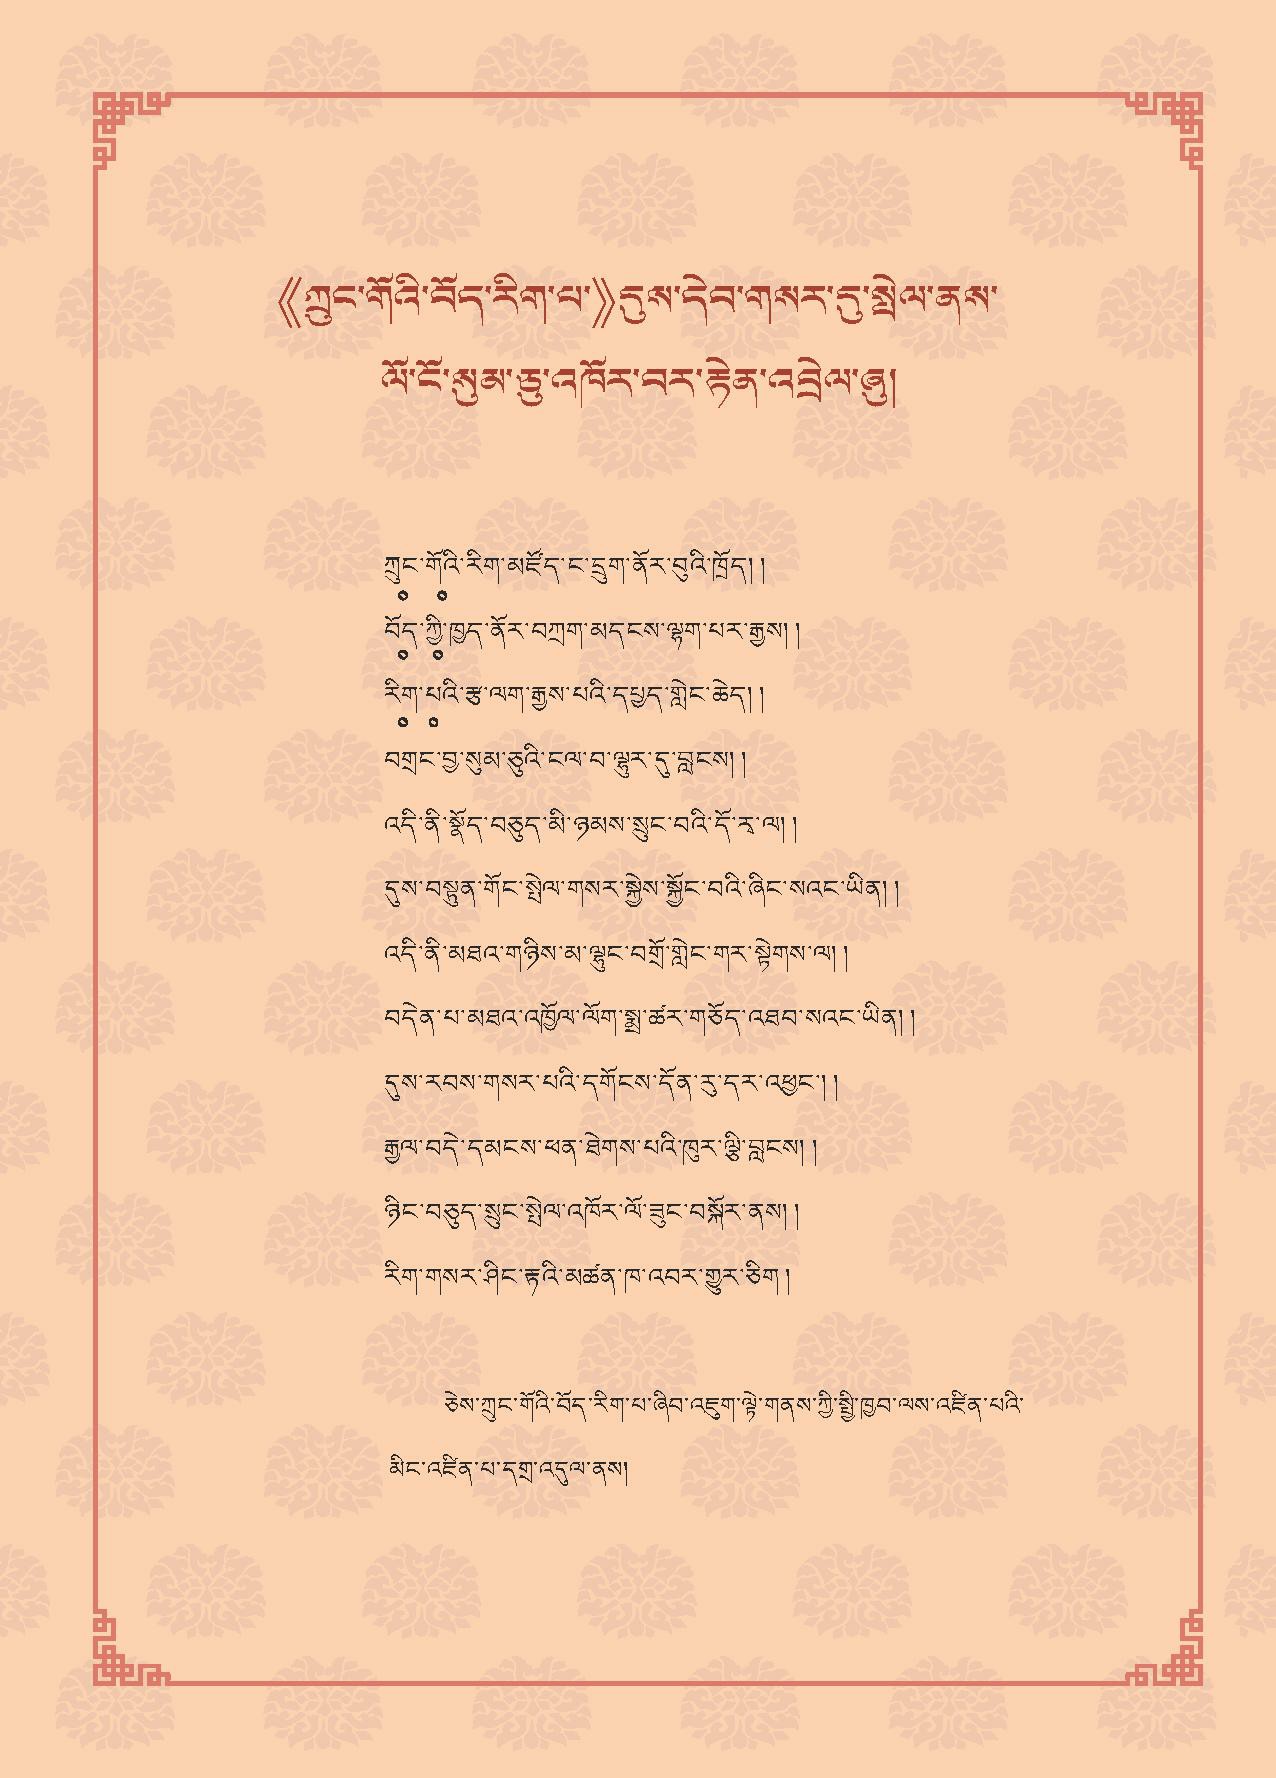 《ཀྲུང་གོའི་བོད་རིག་པ་》དུས་དེབ་གསར་དུ་སྤེལ་ནས་
ལོ་ངོ་སུམ་ཅུ་འཁོར་བར་རྟེན་འབྲེལ་ཞུ།
ཀྲུང་གོའི་རིག་མཛོད་ང་དྲུག་ནོར་བུའི་ཁྲོད། །
བོད་ཀྱི་ཁྱད་ནོར་བཀྲག་མདངས་ལྷག་པར་རྒྱས། །
རིག་པའི་རྩ་ལག་རྒྱས་པའི་དཔྱད་གླེང་ཆེད། །
བགྲང་བྱ་སུམ་ཅུའི་ངལ་བ་ལྷུར་དུ་བླངས། །
འདི་ནི་སྣོད་བཅུད་མི་ཉམས་སྲུང་བའི་དོ་ར་ལ། །
དུས་བསྟུན་གོང་སྤེལ་གསར་སྐྱེས་སྐྱོང་བའི་ཞིང་སའང་ཡིན། །
འདི་ནི་མཐའ་གཉིས་མ་ལྷུང་བགྲོ་གླེང་གར་སྟེགས་ལ། །
བདེན་པ་མཐའ་འཁྱོལ་ལོག་སྨྲ་ཚར་གཅོད་འཐབ་སའང་ཡིན། །
དུས་རབས་གསར་པའི་དགོངས་དོན་རུ་དར་འཕྱང་། །
རྒྱལ་བདེ་དམངས་ཕན་ཐེགས་པའི་ཁུར་ལྕི་བླངས། །
ཉིང་བཅུད་སྲུང་སྤེལ་འཁོར་ལོ་ཟུང་བསྐོར་ནས། །
རིག་གསར་ཤིང་རྟའི་མཚན་ཁ་འབར་གྱུར་ཅིག །
ཅེས་ཀྲུང་གོའི་བོད་རིག་པ་ཞིབ་འཇུག་ལྟེ་གནས་ཀྱི་སྤྱི་ཁྱབ་ལས་འཛིན་པའི་
མིང་འཛིན་པ་དགྲ་འདུལ་ནས།